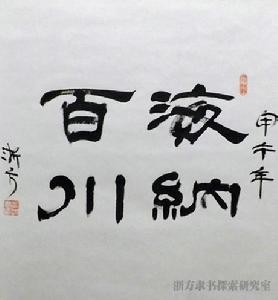 甲午年
海納
百川
浙方
浙方隶书探索研究室